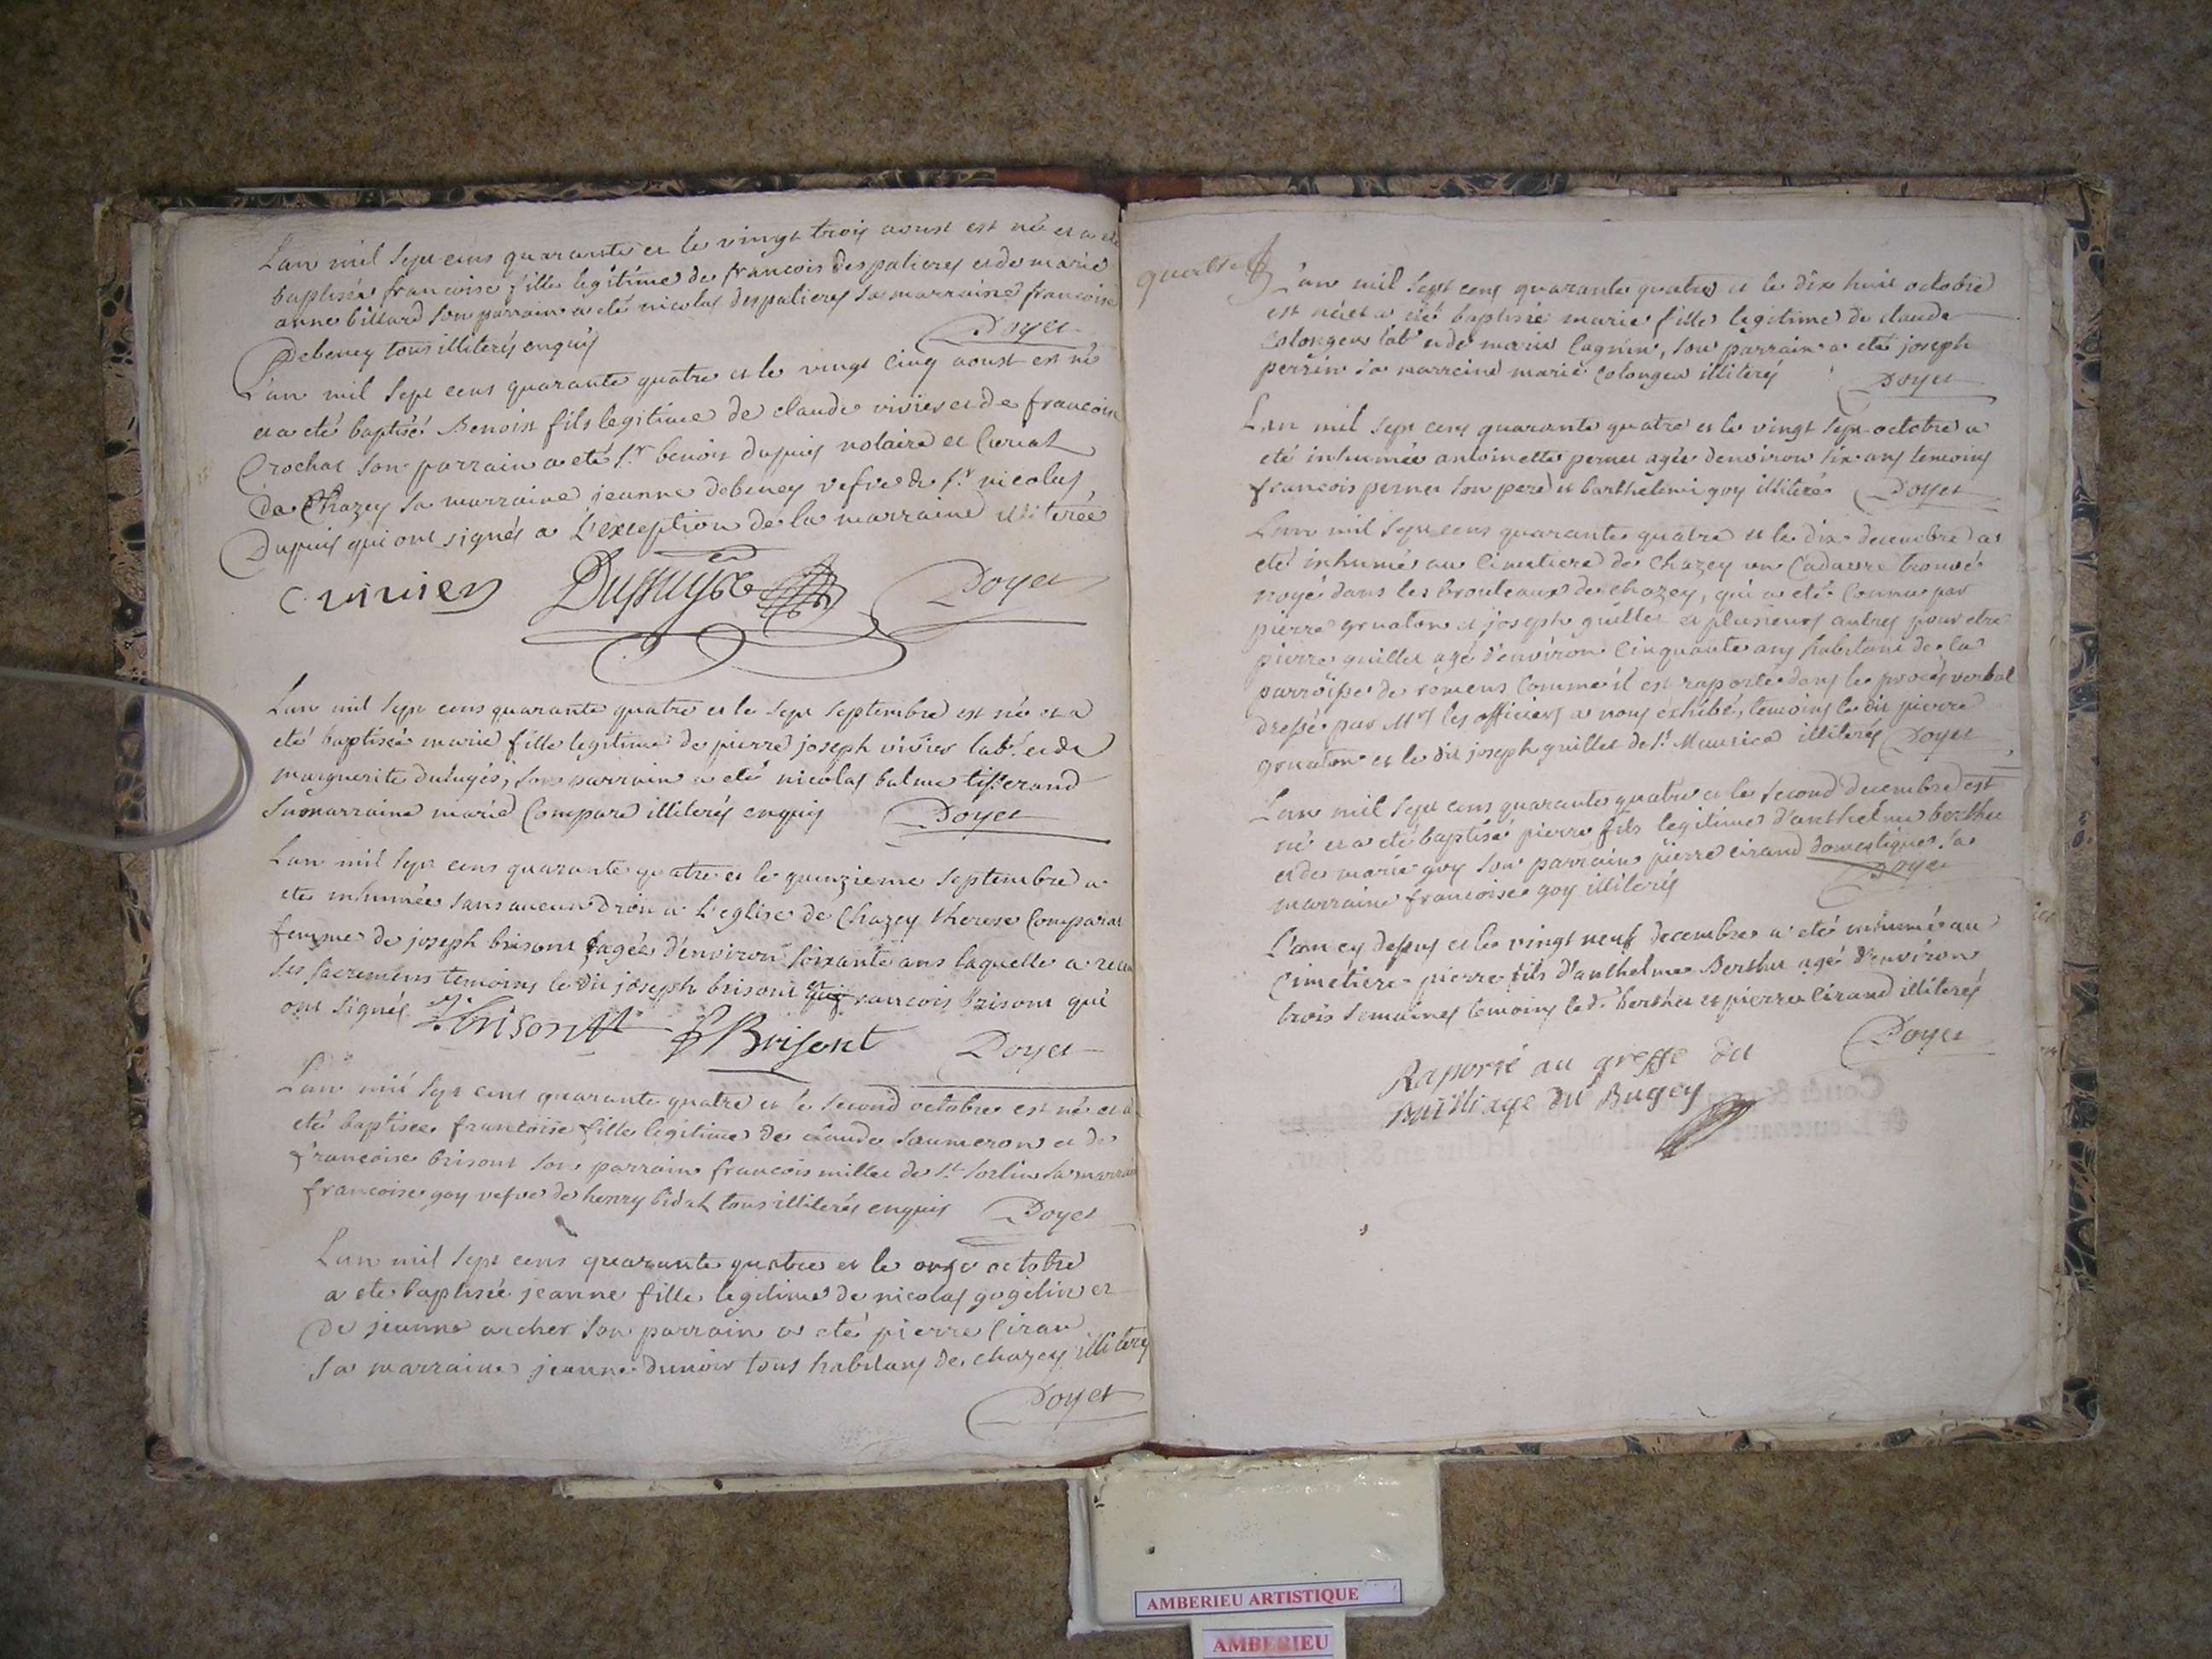 L'an mil sept cens quarante et le vingt trois aoust est né et a eté
baptisée francoise fille legitime de francois despalieres et de marie
anne billard son parrain a eté nicolas despalieres sa marraine francoise
Debeney tous illiterés enquis Doyet
L'an mil sept cens quarante quatre et le vingt cinq aoust est né
et a eté baptisé Benoist fils legitime de claude vivier et de francoise
Crochat son parrain a eté Sr benoit dupuis notaire et Curial
de Chazey sa marraine jeanne debeney vefve de Sr nicolas
Dupuis qui ont signés a L'exception de la marraine illiterée
C vivier Dupuys Doyet
L'an mil sept cens quarante quatre et le sept septembre est né et a
eté baptisée marie fille legitime de pierre joseph vivier lab.r et de
marguerite son parrain a eté nicolas balme tisserand
sa marraine marie Compara illiterés enquis Doyet
L'an mil sept cens quarante quatre et le quinzieme septembre a
ete inhumée sans aucun droit a L'eglise de Chazey therese Comparat
femme de joseph brisont agée d'environ soixante ans laquelle a recu
ses sacremens temoins le dit joseph brisont et francois brisont qui
ont signés J. brisont f Brisont Doyet
L'an mil sept cens quarante quatre et le second octobre est né et a
eté baptisee francoise fille legitime de claude saumeron et de
francoise brisont son parrain francois millet de St Sorlin sa marraine
francoise goy vefve de henry bidat tous illiterés enquis Doyet
L'an mil sept cens quarante quatre et le onze octobre
a ete baptisée jeanne fille legitime de nicolas gogelin et
De jeanne archer son parrain a eté pierre Ciran
sa marraine jeanne dunoir tous habitans de chazey illiterés
Doyet
L'an mil sept cens quarante quatre et le dix huit octobre
est née et a eté baptisée marie fille legitime de claude
Colongeu lab.r et de marie Cagnin, son parrain a eté joseph
perrin sa marreine marie Colongea illiterés Doyet
L'an mil sept cens quarante quatre et le vingt sept octobre a
eté inhumée antoinette pernet agée denviron six ans temoins
francois pernet son pere et barthelemi goy illiterés Doyet
L'an mil sept cens quarante quatre et le dix decembre a
eté inhumés au Cimetiere de Chazey un Cadavre trouvé
noyé dans les brouteaux de chazey, qui a eté Connu par
pierre gruaton et joseph guillet et plusieurs autres pour etre
pierre guillet agé d'environ Cinquante ans habitant de la
parroisse de remens Comme il est raporté dans le procés verbal
dressé par Mrs les officiers a nous exhibé, temoins le dit pierre
gruaton et le dit joseph guillet de St Maurice illiterés Doyet
L'an mil sept cens quarante quatre et le second decembre est
né et a eté baptisé pierre fils legitime d'anthelme berthet
et de marie goy son parrain pierre Cirand domestique, sa
marraine francoise goy illiterés Doyet
L'an cy dessus et le vingt neuf decembre a eté inhumé au
Cimetiere pierre fils d'anthelme Berthet agé d'environ
trois semaines temoins led. berthet et pierre Cirand illiterés
Doyet
Raporté au greffe du
Bailliage du Bugey
AMBERIEU ARTISTIQUE
AMBERIEU